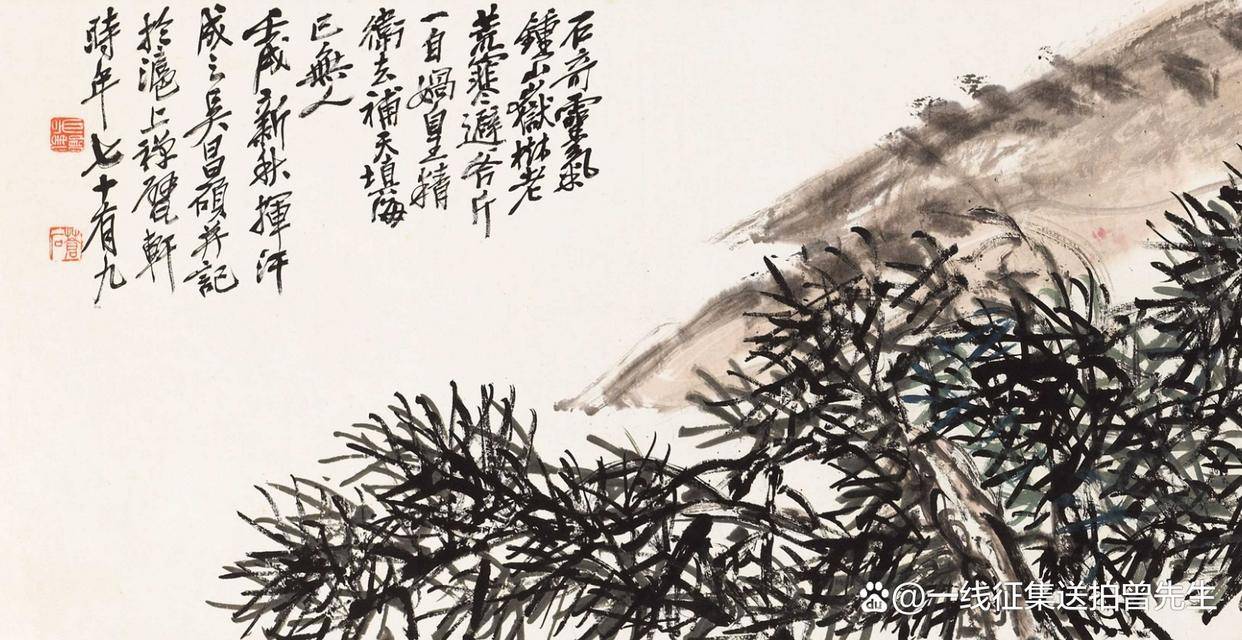 石奇靈氣
鍾山嶽樹老
荒寒避斧斤
一自媧皇精
衛去補天填海
已無人
壬戌新秋揮汗
成之吳昌碩并記
於滬上禪甓軒
時年七十有九
倉石
@一线征集送拍曾先生